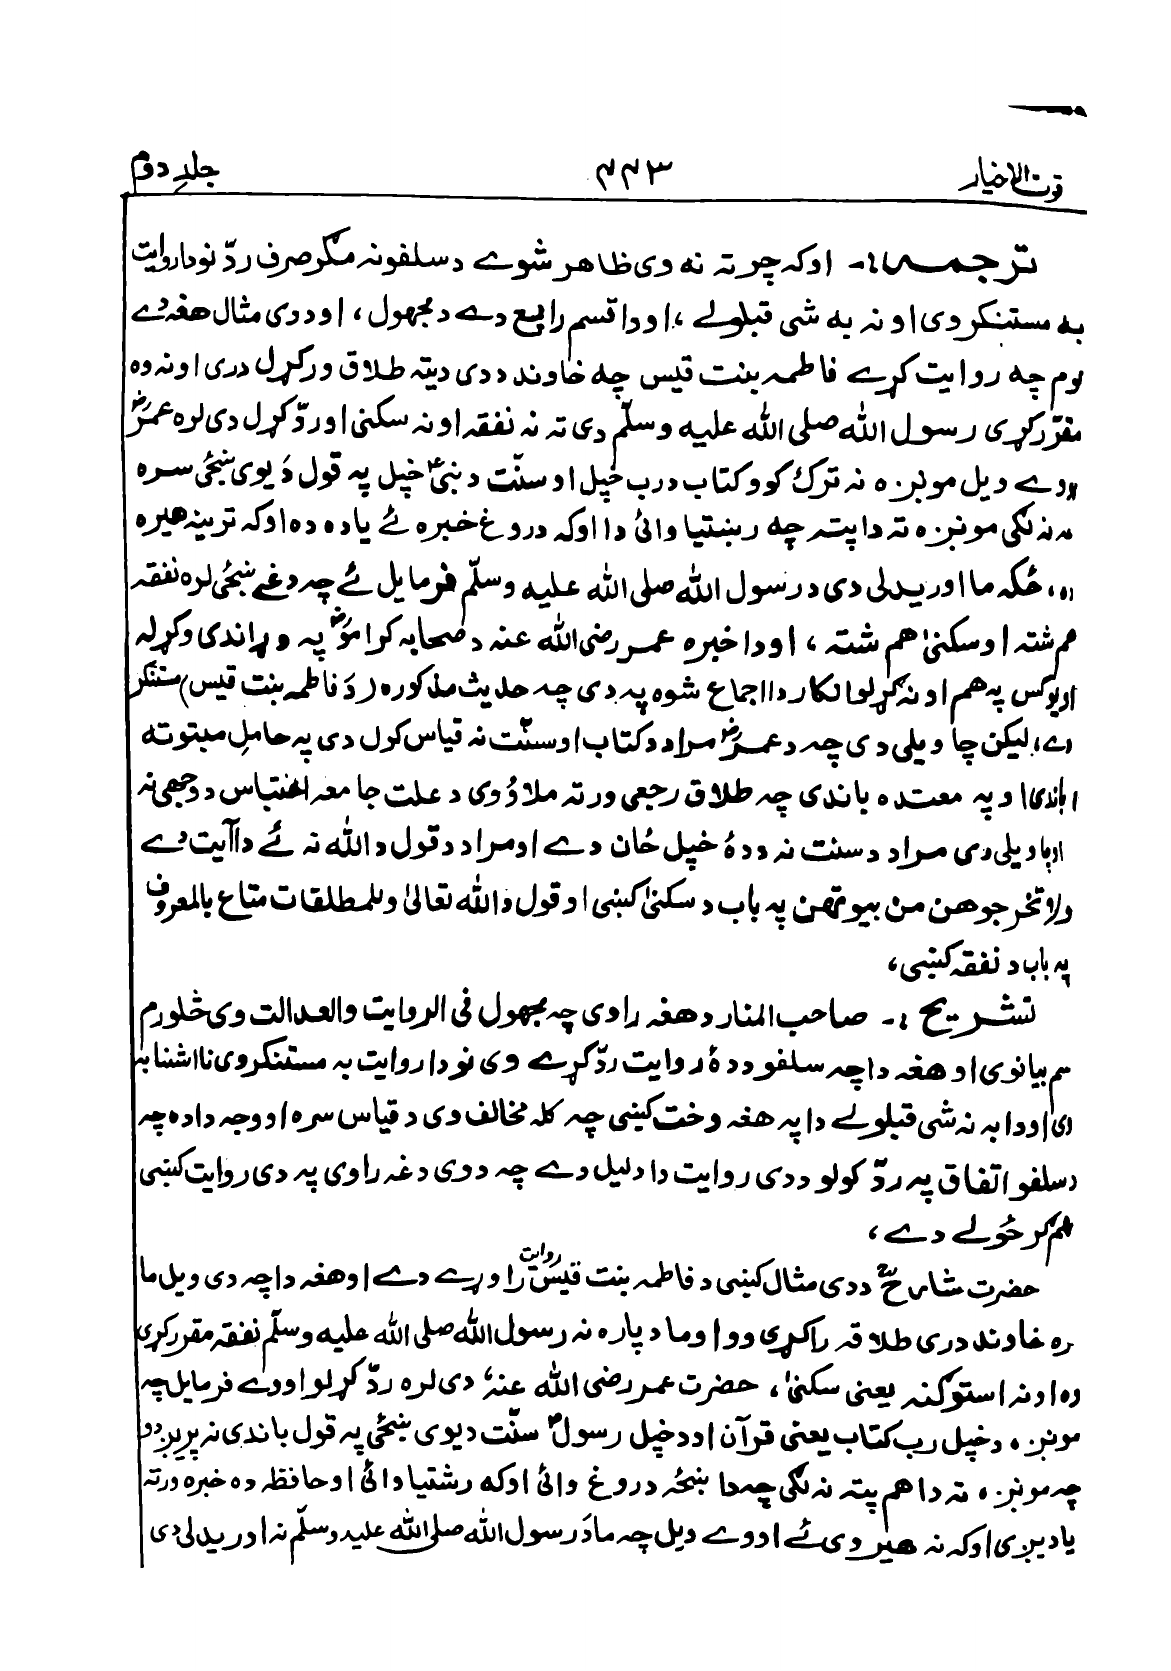 قوت الاخیار ۴۴۳ جلدِ دوم
ترجمہ:۔ اوکہ چرتہ نہ وی ظاھر شوے دسلفونہ مگر صرف ردّ نودا روایت
بہ مستنکر وی او نہ بہ شی قبلولے ، اودا قسم رابع دے د مجھول ، اوددی مثال ھغہ دے
چہ روایت کړے فاطمہ بنت قیس چہ خاوند ددی دیتہ طلاق ورکړل دری او نہ وہ
مقرّر کړی رسول اللہ صلی اللہ علیہ وسلّم دی تہ نہ نفقہ او نہ سکنیٰ او ردّ کړل دی لرہ عمرؓ
وے ویل مونږہ نہ ترک کوو کتاب درب خپل او سنّت د نبیؐ خپل پہ قول دَیوی ښځی سرہ
نہ لگی مونږہ تہ دا پتہ چہ رښتیا وائی دا اوکہ دروغ خبرہ ئے یادہ دہ اوکہ ترینہ ھیرہ
دہ، ځکہ ما اوریدلی دی د رسول اللہ صلی اللہ علیہ وسلّم فرمایل ئے چہ دغے ښځی لرہ نفقہ
ھم شتہ او سکنیٰ ھم شتہ ، او دا خبرہ عمر رضی اللہ عنہ د صحابہ کرامؓ پہ وړاندی وکړلہ
او یوکس پہ ھم او نہ کړلو انکار دا اجماع شوہ پہ دی چہ حدیث مذکورہ (دَ فاطمہ بنت قیس) مستنکر
دے، لیکن چا ویلی دی چہ دعمرؓ مراد د کتاب او سنّت نہ قیاس کول دی پہ حاملِ مبتوتہ
باندی او پہ معتدہ باندی چہ طلاق رجعی ورتہ ملاؤ وی د علت جامعہ احتباس د وجھی نہ
او چا ویلی دی مراد د سنت نہ ددۂ خپل ځان دے او مراد د قول د اللہ نہ ئے دا آیت دے
ولا تخرجوھن من بیوتھن پہ باب د سکنیٰ کښی او قول د اللہ تعالیٰ وللمطلقات متاع بالمعروف
پہ باب د نفقہ کښی،
تشریح :۔ صاحب المنار د ھغہ راوی چہ مجھول فی الروایت والعدالت وی څلورم
بیانوی او ھغہ داچہ سلفو ددۂ روایت ردّ کړے وی نو دا روایت بہ مستنکر وی نااشنا بہ
وی او دا بہ نہ شی قبلولے دا پہ ھغہ وخت کښی چہ کلہ مخالف وی د قیاس سرہ او وجہ دادہ چہ
د سلفو اتفاق پہ ردّ کولو ددی روایت دا دلیل دے چہ دوی دغہ راوی پہ دی روایت کښی
گرځولے دے ،
حضرت شارحؒ ددی مثال کښی د فاطمہ بنت قیسؓ روایت راوړے دے او ھغہ داچہ دی ویل ما
رہ خاوند دری طلاقہ راکړی وو او ما دپارہ نہ رسول اللہ صلی اللہ علیہ وسلّم نفقہ مقرر کړی
وہ او نہ استوګنہ یعنی سکنیٰ ، حضرت عمر رضی اللہ عنہٗ دی لرہ ردّ کړلو او وے فرمایل چہ
مونږہ دخپل رب کتاب یعنی قرآن او دخپل رسولؐ سنّت د یوی ښځی پہ قول باندی نہ پریږدو
چہ مونږہ تہ دا ھم پتہ نہ لگی چہ دا ښځہ دروغ وائی اوکہ رشتیا وائی او حافظہ دہ خبرہ ورتہ
یادیږی اوکہ نہ ھیروی ئے او وے ویل چہ ما دَ رسول اللہ صلی اللہ علیہ وسلّم نہ اوریدلی دی